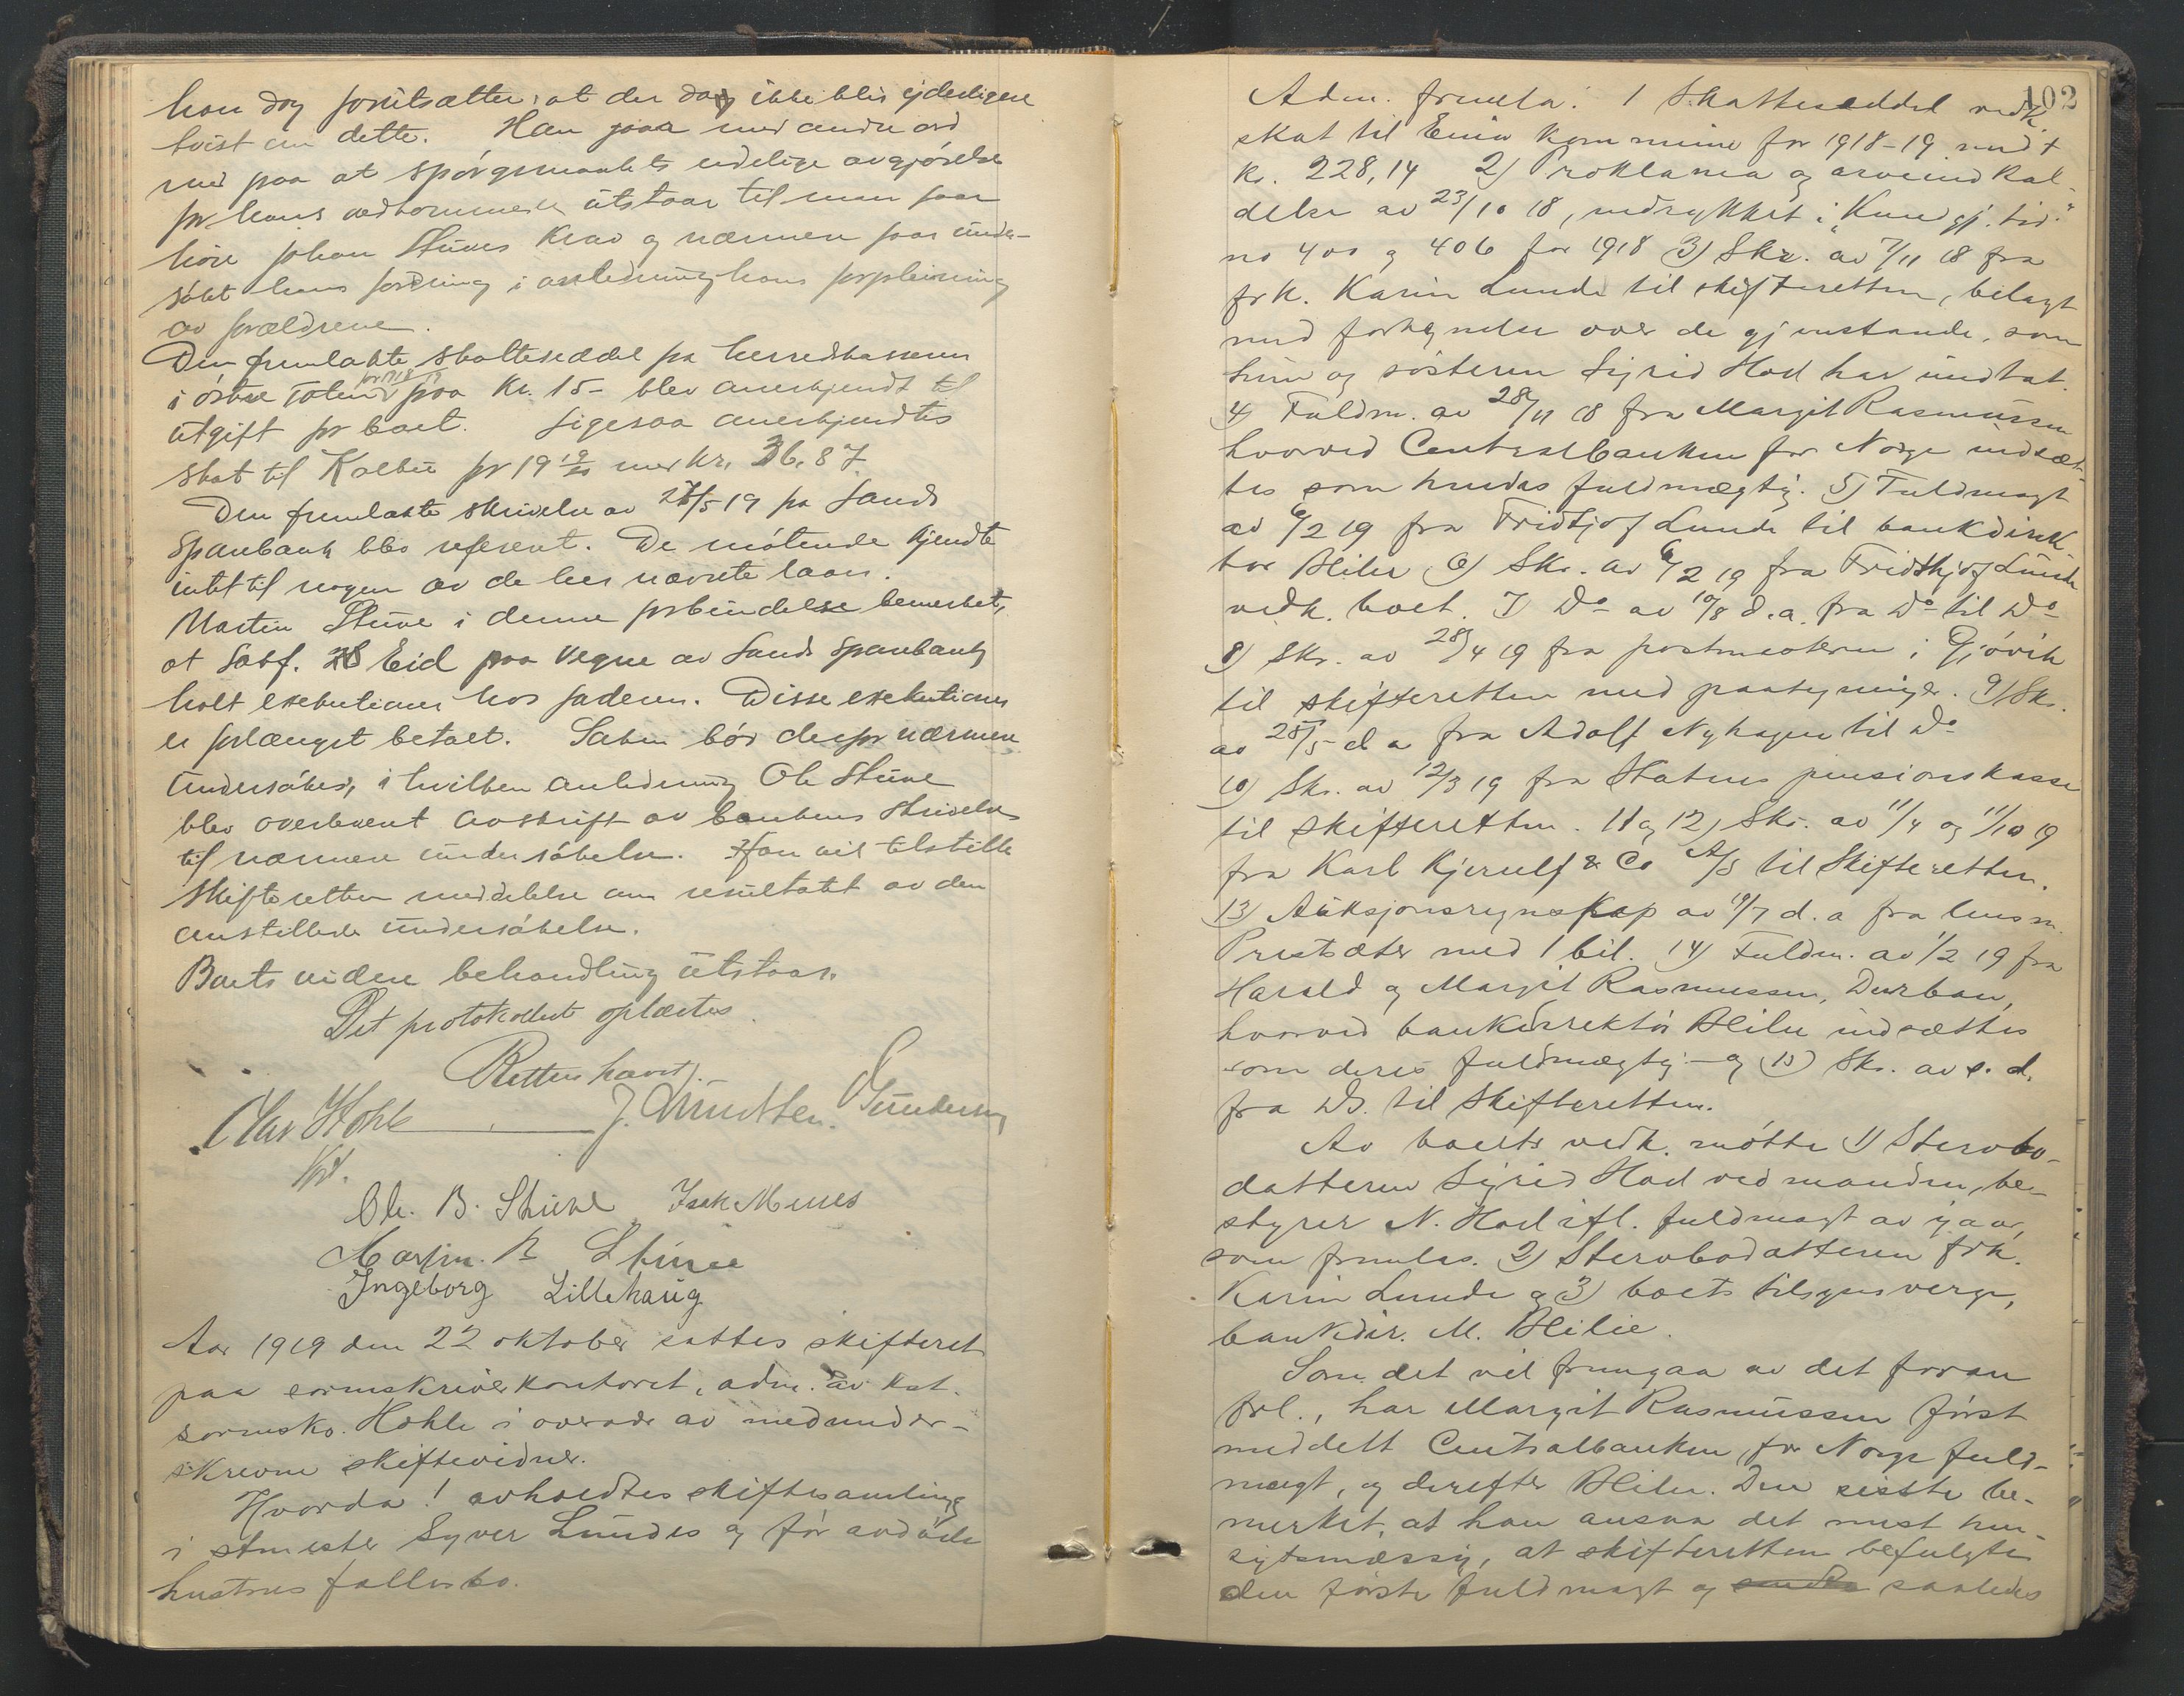 han dog forutsætter, at der dog ikke blir yderligere
tvist om dette. Han gaar med andre ord
med paa at spørgsmaalets endelige avgjørelse
for hans vedkommende utstaar til man faar
høre Johan Stuves krav og nærmere faar under-
søkt hans fordring i anledning hans forpleining
av forældrene.
Den fremlagte skatteseddel fra herredskassereren
i østre Toten for 1918/19 paa kr. 15- blev anerkjendt til
utgift for boet. Ligesaa anerkjendtes
skat til Kolbu for 19 19/20 med kr. 36.87.
Den fremlagte skrivelse av 27/5 19 fra Lands
Sparebank blev referert. De møtende kjendte
intet til nogen av de her nævnte laan.
Martin Stuve i denne forbindelse bemerket,
at Sakf. Eid paa vegne av Lands Sparebank
holt exekutioner hos faderen. Disse exekutioner
er forlængst betalt. Saken bør derfor nærmere
undersøkes, i hvilken anledning Ole Stuve
blev overlevert avskrift av bankens skrivelse
til nærmere undersøkelse. Han vil tilstille
skifteretten meddelelse om resultatet av den
anstillede undersøkelse.
Boets videre behandling utstaar.
Det protokollerte oplæstes.
Retten hævet.
Olav Hohle J. Knudsen. Gundersen
kst.
Ole. B. Stuve Isak Mures
Martin. B Stuve
Ingeborg Lillehaug
Aar 1919 den 22 oktober sattes skifteret
paa sorenskriverkontoret, adm. av kst.
sorensks. Hohle i overvær av medunder-
skrevne skiftevidner.
Hvorda! avholdtes skiftesamling
i stmester Syver Lundes og før avdøde
hustrus fællesbo.
102
Adm. fremla: 1 Skatteseddel vedk.
skat til Eina kommune for 1918-19 med +
kr. 228,14 2) Proklama og arveindkal-
delse av 23/10 18, indrykket i "Kundgj. tid."
no 400 og 406 for 1918 3) Skr. av 7/11 18 fra
frk. Karin Lunde til skifteretten, bilagt
med fortegnelse over de gjenstande, som
hun og søsteren Sigrid Hod har undtat.
4) Fuldm. av 28/11 18 fra Margit Rasmussen
hvorved Centralbanken for Norge indsæt-
tes som hendes fuldmægtig. 5) Fuldmagt
av 6/2 19 fra Fridtjof Lunde til bankdirek-
tør Blilie 6) Skr. av 6/2 19 fra Fridthjof Lunde
vedk. boet. 7) Do av 10/8 d.a. fra Do til Do
8) Skr. av 28/4 19 fra postmesteren i Gjøvik
til skifteretten med paategninger. 9) Skr.
av 28/5 d a fra Adolf Nyhagen til Do
10) Skr. av 12/3 19 fra Statens pensionskasse
til skifteretten. 11 og 12) Skr. av 11/4 og 11/10 19
fra Karl Kjerulf & Co A/S til Skifteretten.
13) Auksjonsregnskap av 19/7 d. a fra lensm.
Prestsæter med 1 bil. 14) Fuldm. av 1/2 19 fra
Harald og Margit Rasmussen, Durban,
hvorved bankdirektør Blilie indsættes
som deres fuldmægtig - og 15) Skr. av s. d.
fra Ds. til Skifteretten.
Av boets vedk. møtte 1) Stervbo-
datteren Sigrid Hod ved manden, be-
styrer N. Hod ifl. fuldmagt av igaar,
som fremlas. 2) Stervbodatteren frk.
Karin Lunde og 3) boets tilsynsverge,
bankdir. M. Blilie.
Som det vil fremgaa av det foran
frl., har Margit Rasmussen først
meddelt Centralbanken for Norge fuld-
magt, og derefter Blilie. Den sidste be-
merket, at han ansaa det mest hen-
sigtsmæssig, at skifteretten befulgte
den første fuldmagt og saaledes